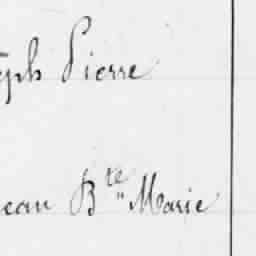 eph Pierre
ean Bte Marie